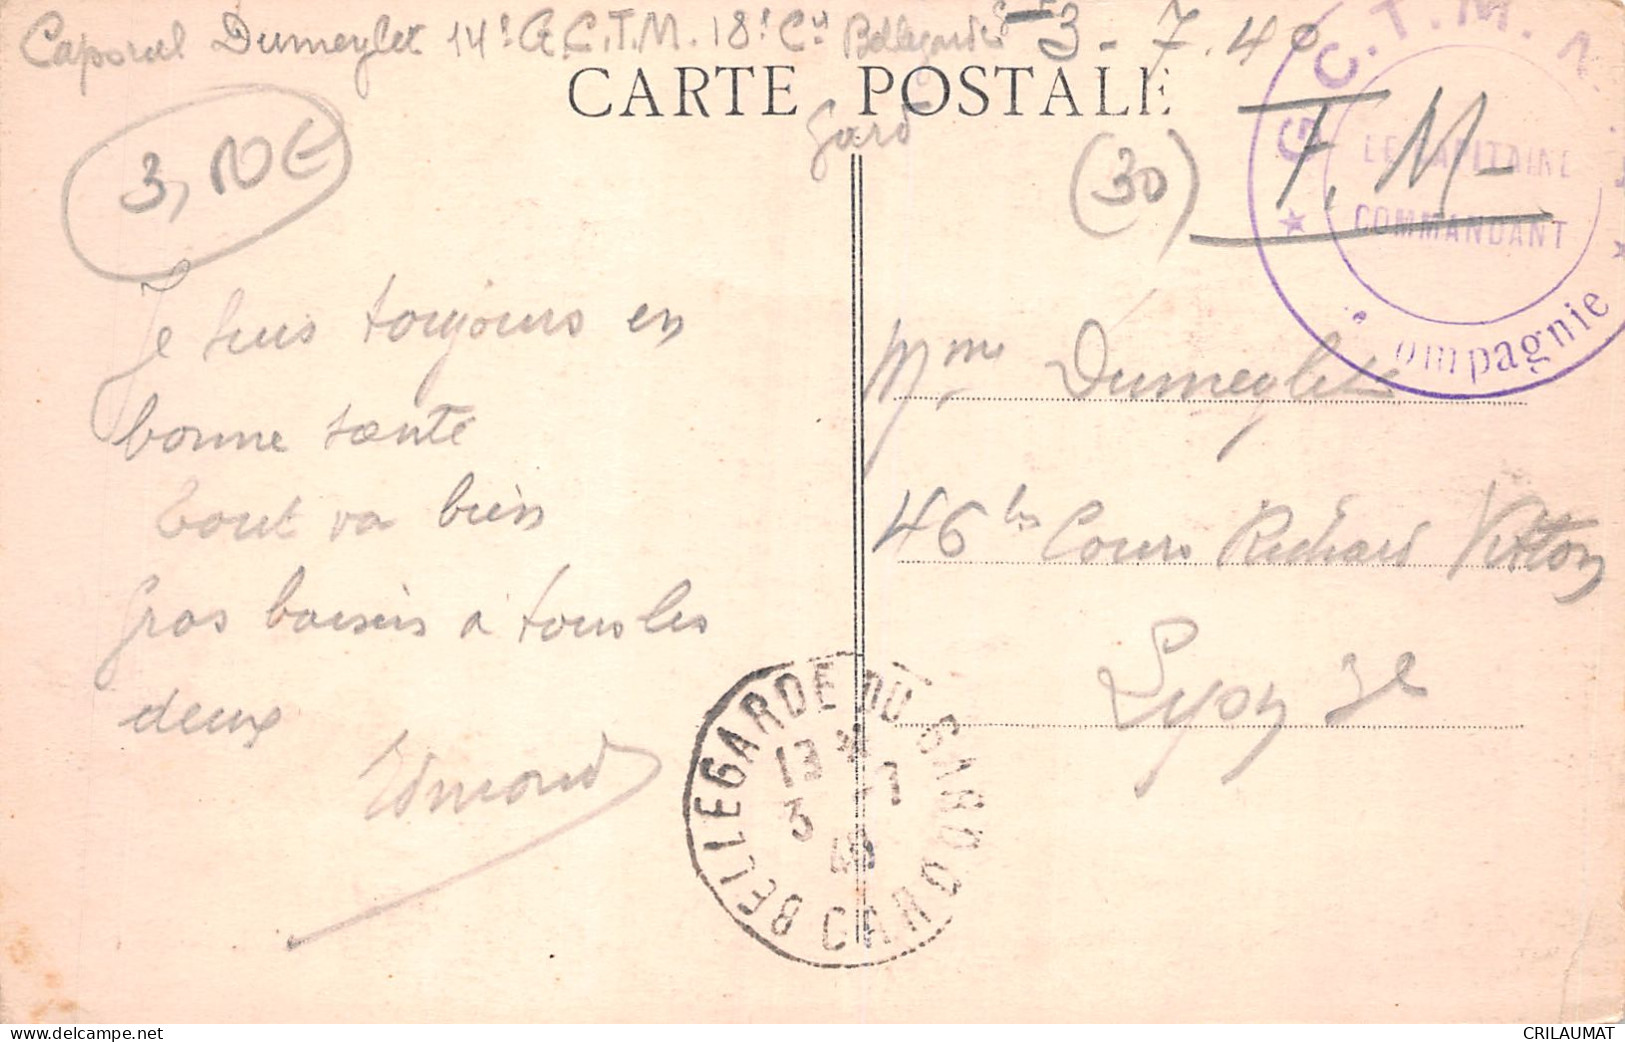 Caporal Dumeylet 14e G.C.T.M. 18e Cie Bellegarde 3-7.40
CARTE POSTALE
Gard
(30)
3,10€
F.M-
G C.T.M.
LE CAPITAINE
COMMANDANT
ompagnie
Je suis toujours en
bonne santé
Tout va bien
Gros baisers à tous les
deux
Edmond
Mme Dumeylet
46 bis Cours Richard Vitton
Lyon 3e
BELLEGARDE DU GARD
13
3 -7
40
GARD
www.delcampe.net
CRILAUMAT